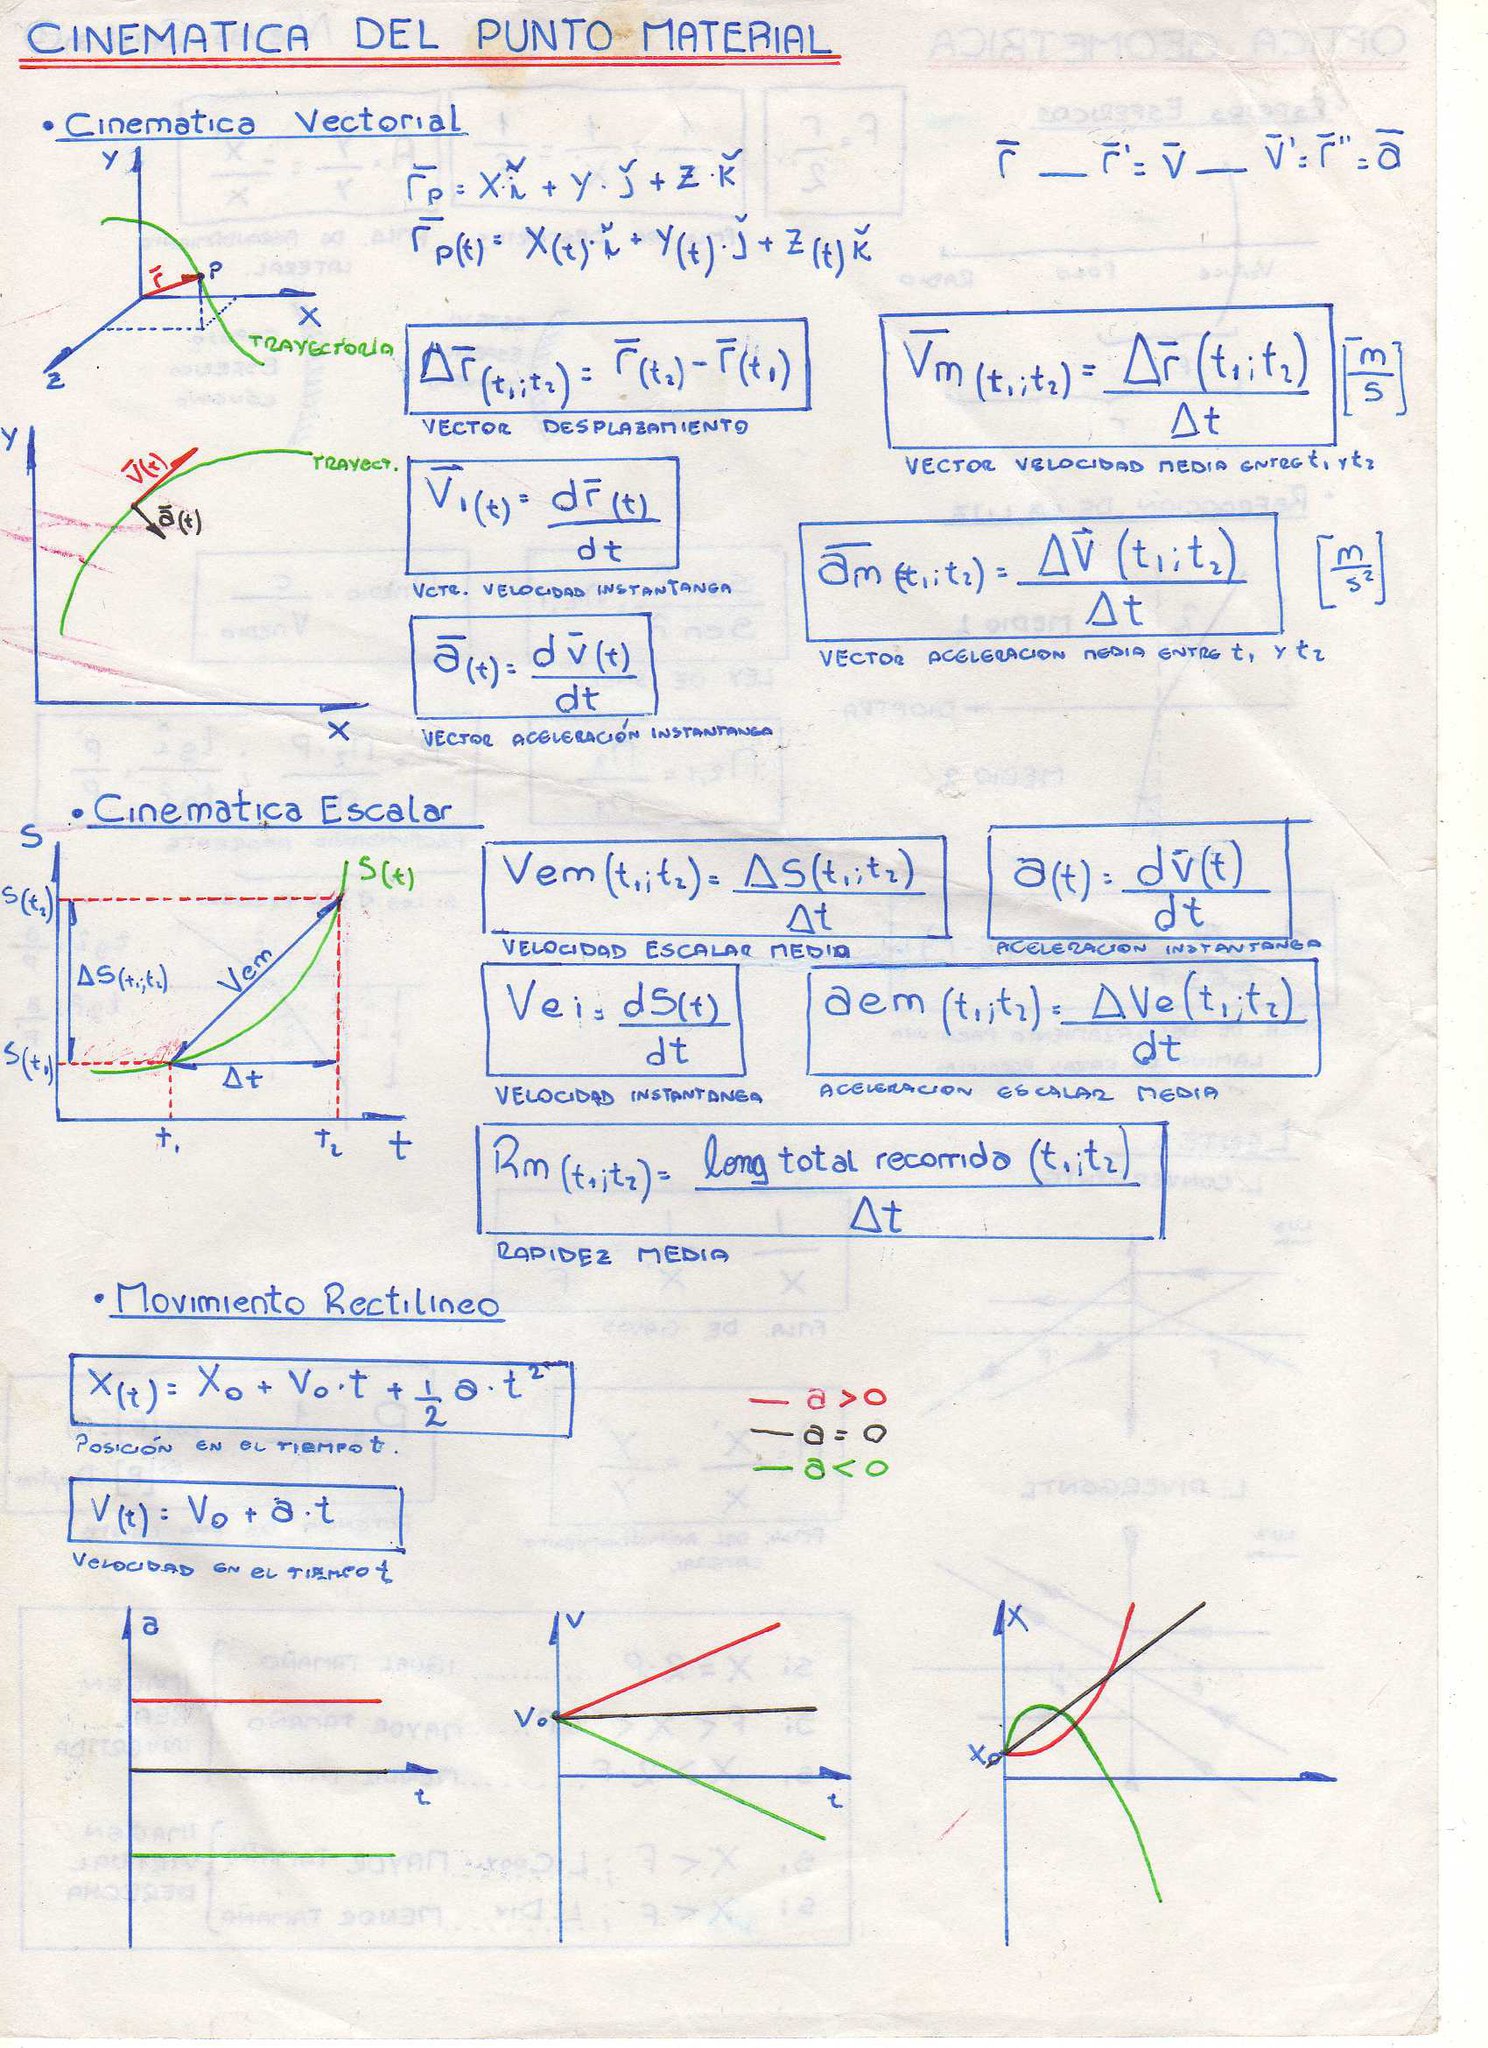 CINEMATICA DEL PUNTO MATERIAL
• Cinematica Vectorial
r̄ — r̄' = v̄ — v̄' = r̄'' = ā
Y
r̄
P
X
Z
TRAYECTORIA
r̄p = X·ǐ + Y·ǰ + Z·ǩ
r̄p(t) = X(t)·ǐ + Y(t)·ǰ + Z(t) ǩ
Δr̄(t₁;t₂) = r̄(t₂) - r̄(t₁)
VECTOR DESPLAZAMIENTO
V̄m(t₁;t₂) = Δr̄(t₁;t₂) / Δt [m/s]
VECTOR VELOCIDAD MEDIA ENTRE t₁ y t₂
Y
v̄(t)
ā(t)
TRAYECT.
X
V̄₁(t) = dr̄(t) / dt
VCTR. VELOCIDAD INSTANTANEA
ām(t₁;t₂) = ΔV̄(t₁;t₂) / Δt [m/s²]
VECTOR ACELERACION MEDIA ENTRE t₁ y t₂
ā(t) = dv̄(t) / dt
VECTOR ACELERACIÓN INSTANTANEA
• Cinematica Escalar
S
S(t₂)
ΔS(t₁;t₂)
S(t₁)
Vem
Δt
S(t)
t₁
t₂
t
Vem(t₁;t₂) = ΔS(t₁;t₂) / Δt
VELOCIDAD ESCALAR MEDIA
a(t) = dv̄(t) / dt
ACELERACION INSTANTANEA
Vei = dS(t) / dt
VELOCIDAD INSTANTANEA
aem(t₁;t₂) = ΔVe(t₁;t₂) / dt
ACELERACION ESCALAR MEDIA
Rm(t₁;t₂) = long total recorrida (t₁;t₂) / Δt
RAPIDEZ MEDIA
• Movimiento Rectilineo
X(t) = X₀ + V₀·t + 1/2 a·t²
POSICIÓN EN EL TIEMPO t.
— a > 0
— a = 0
— a < 0
V(t) = V₀ + a·t
VELOCIDAD EN EL TIEMPO t
a
t
V
V₀
t
X
X₀